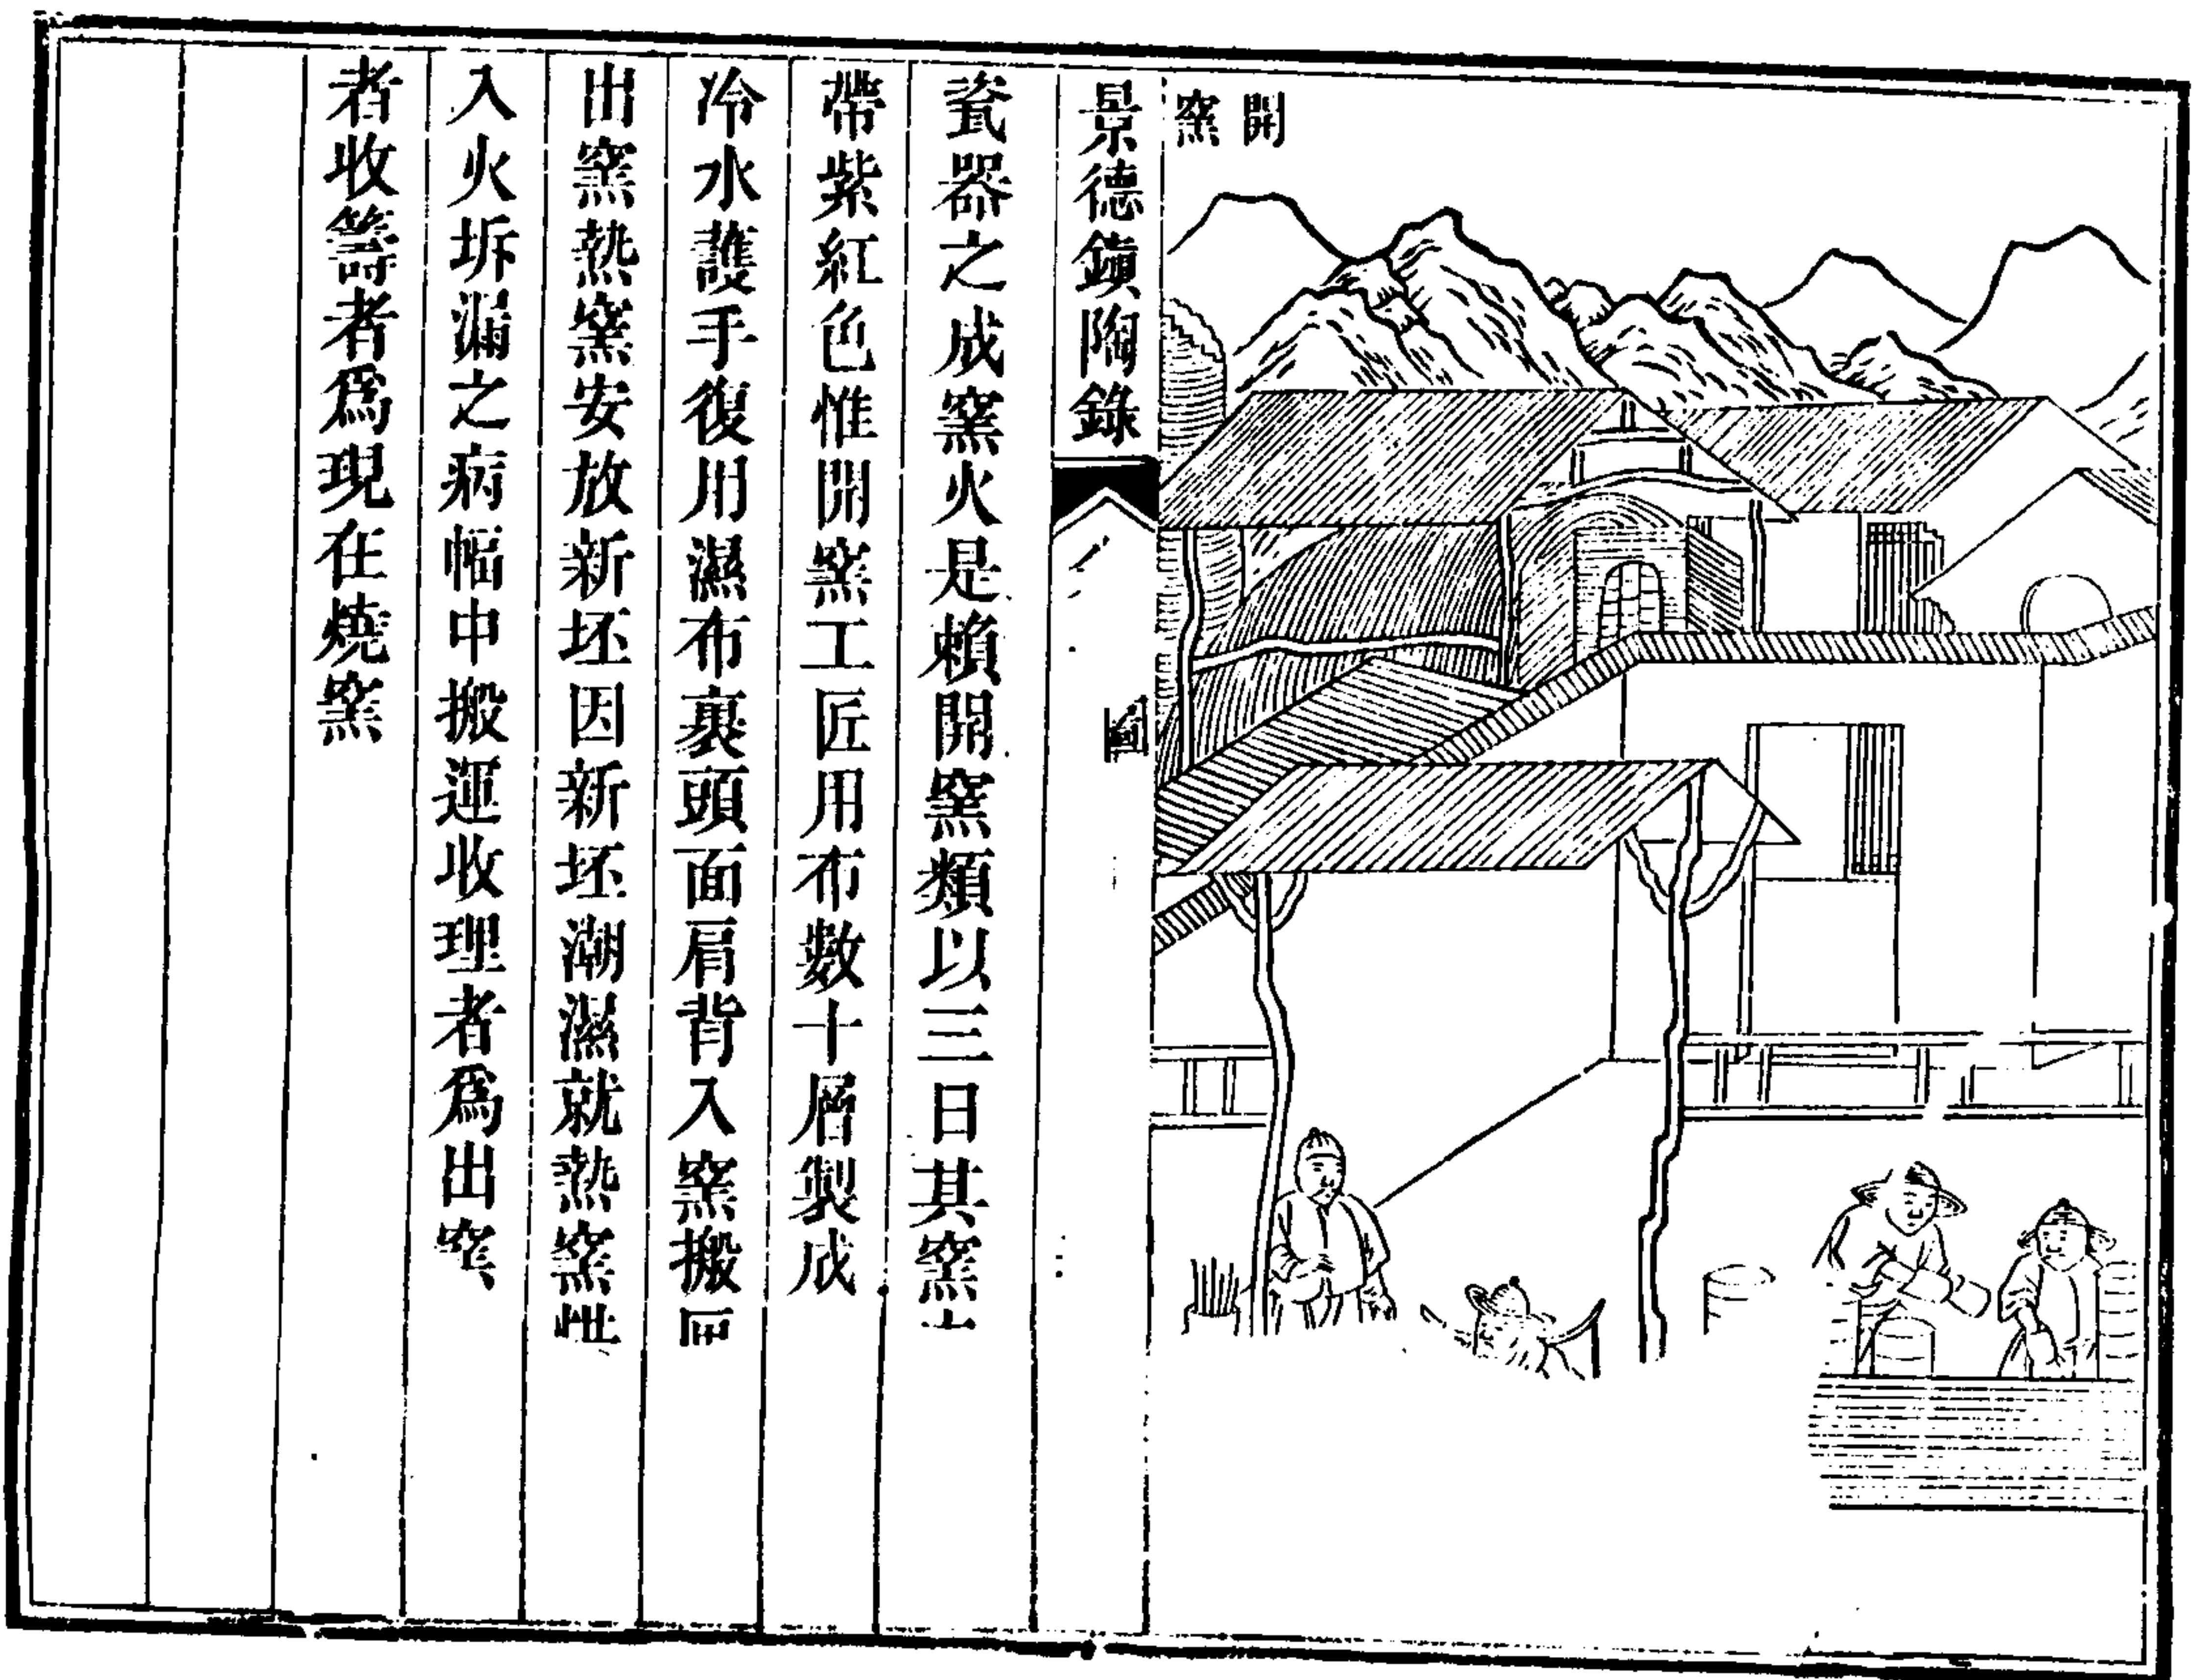 開窯
景德鎮陶錄
圖
瓷器之成窯火是賴開窯類以三日其窯
帶紫紅色惟開窯工匠用布數十層製成
冷水護手復用濕布裹頭面肩背入窯搬
出窯熱窯安放新坯因新坯潮濕就熱窯
入火坼漏之病幅中搬運收理者爲出窯
者收籌者爲現在燒窯